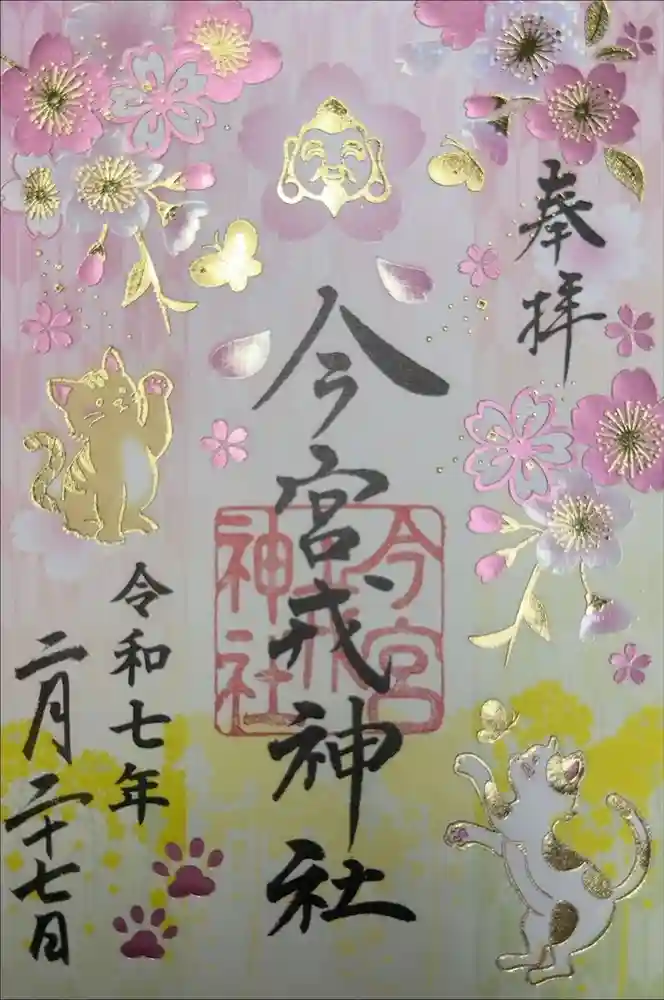 奉拝
今宮戎神社
今宮戎神社
令和七年
二月二十七日